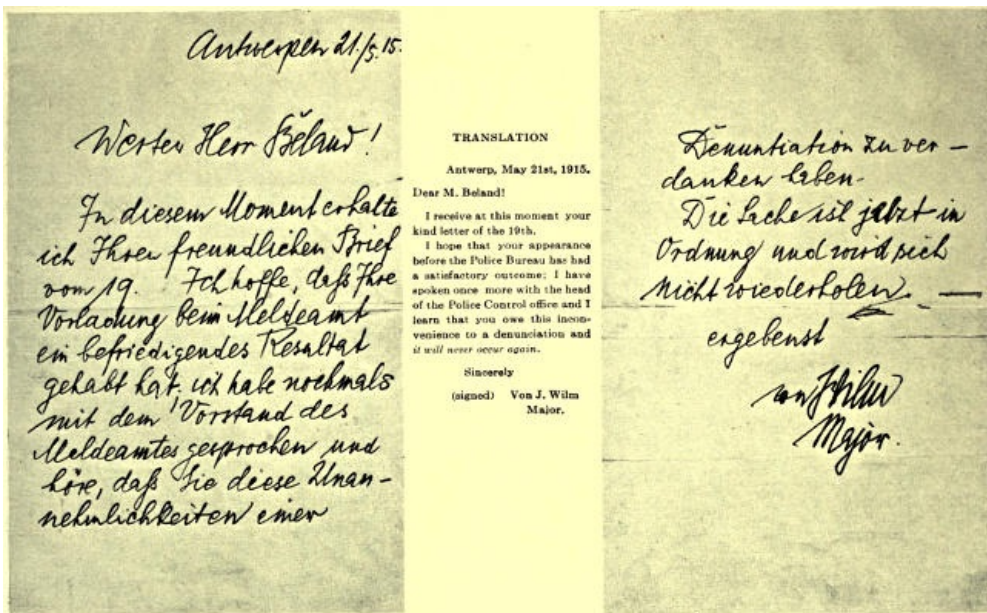 Antwerpen 21./5.15.
Werter Herr Béland!
In diesem Moment erhalte
ich Ihren freundlichen Brief
vom 19. Ich hoffe, daß Ihre
Vorladung beim Meldeamt
ein befriedigendes Resultat
gehabt hat, ich habe nochmals
mit dem Vorstand des
Meldeamtes gesprochen und
höre, daß Sie diese Unan-
nehmlichkeiten einer
TRANSLATION
Antwerp, May 21st, 1915.
Dear M. Beland!
I receive at this moment your
kind letter of the 19th.
I hope that your appearance
before the Police Bureau has had
a satisfactory outcome; I have
spoken once more with the head
of the Police Control office and I
learn that you owe this incon-
venience to a denunciation and
it will never occur again.
Sincerely
(signed) Von J. Wilm
Major.
Denuntiation zu ver-
danken haben.
Die Sache ist jetzt in
Ordnung und wird sich
nicht wiederholen. —
ergebenst
von J Wilm
Major.